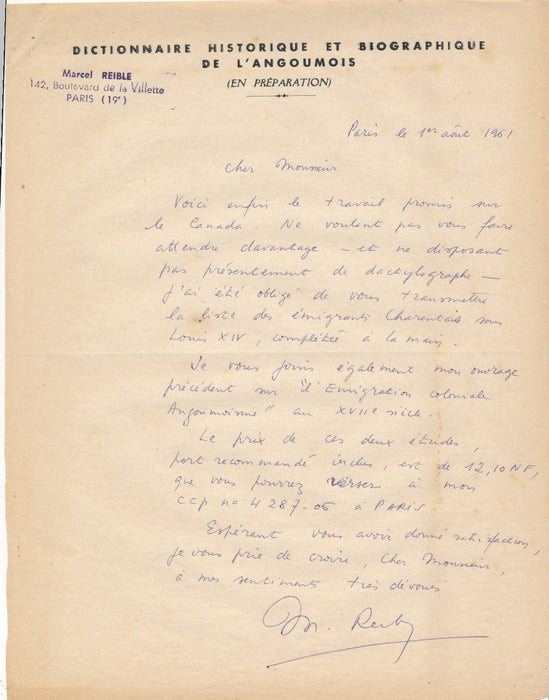 DICTIONNAIRE HISTORIQUE ET BIOGRAPHIQUE
DE L'ANGOUMOIS
(EN PRÉPARATION)
Marcel REIBLE
142, Boulevard de la Villette
PARIS (19e)
Paris le 1er août 1961
Cher Monsieur
Voici enfin le travail promis sur
le Canada. Ne voulant pas vous faire
attendre davantage – et ne disposant
pas présentement de dactylographe –
j'ai été obligé de vous transmettre
la liste des émigrants Charentais sous
Louis XIV, complétée à la main.
Je vous joins également mon ouvrage
précédent sur "l'Emigration coloniale
Angoumoisine" au XVIIe siècle.
Le prix de ces deux études,
port recommandé inclus, est de 12,10 NF,
que vous pourrez verser à mon
CCP no 4287-06 à PARIS.
Espérant vous avoir donné satisfaction,
je vous prie de croire, Cher Monsieur,
à mes sentiments très dévoués
M. Reible